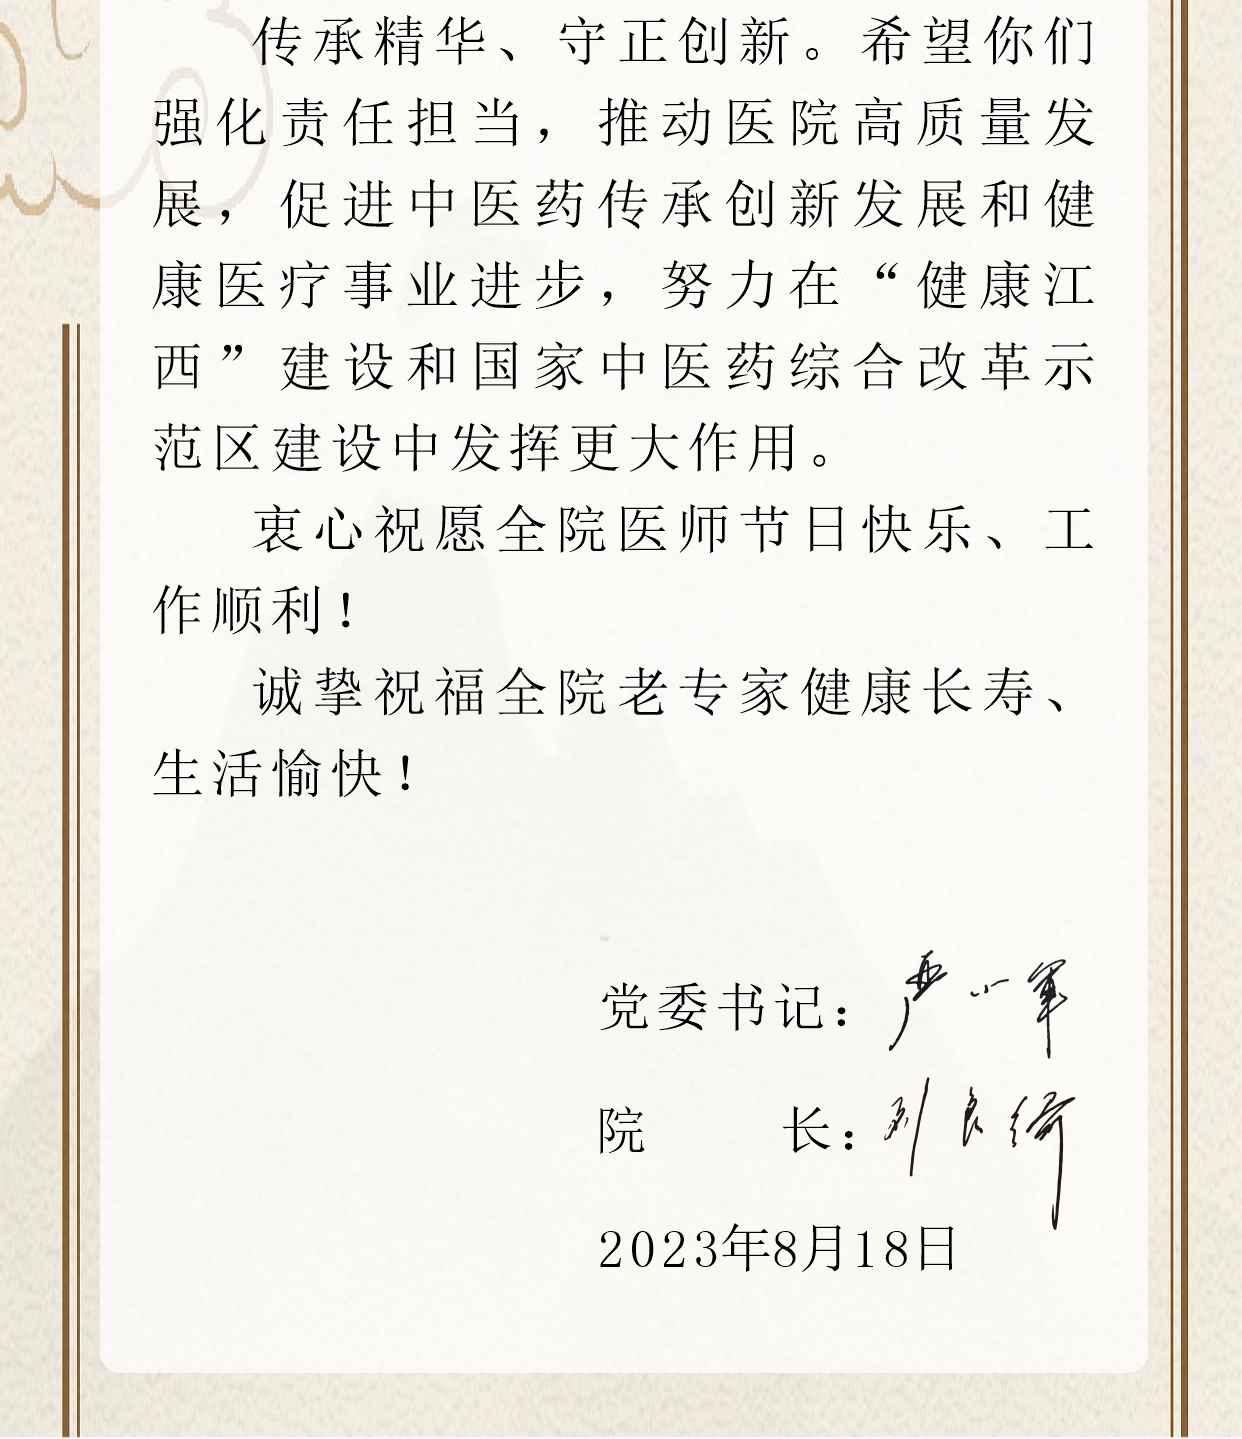 传承精华、守正创新。希望你们
强化责任担当，推动医院高质量发
展，促进中医药传承创新发展和健
康医疗事业进步，努力在“健康江
西”建设和国家中医药综合改革示
范区建设中发挥更大作用。
衷心祝愿全院医师节日快乐、工
作顺利！
诚挚祝福全院老专家健康长寿、
生活愉快！
党委书记：严小军
院 长：刘良绮
2023年8月18日